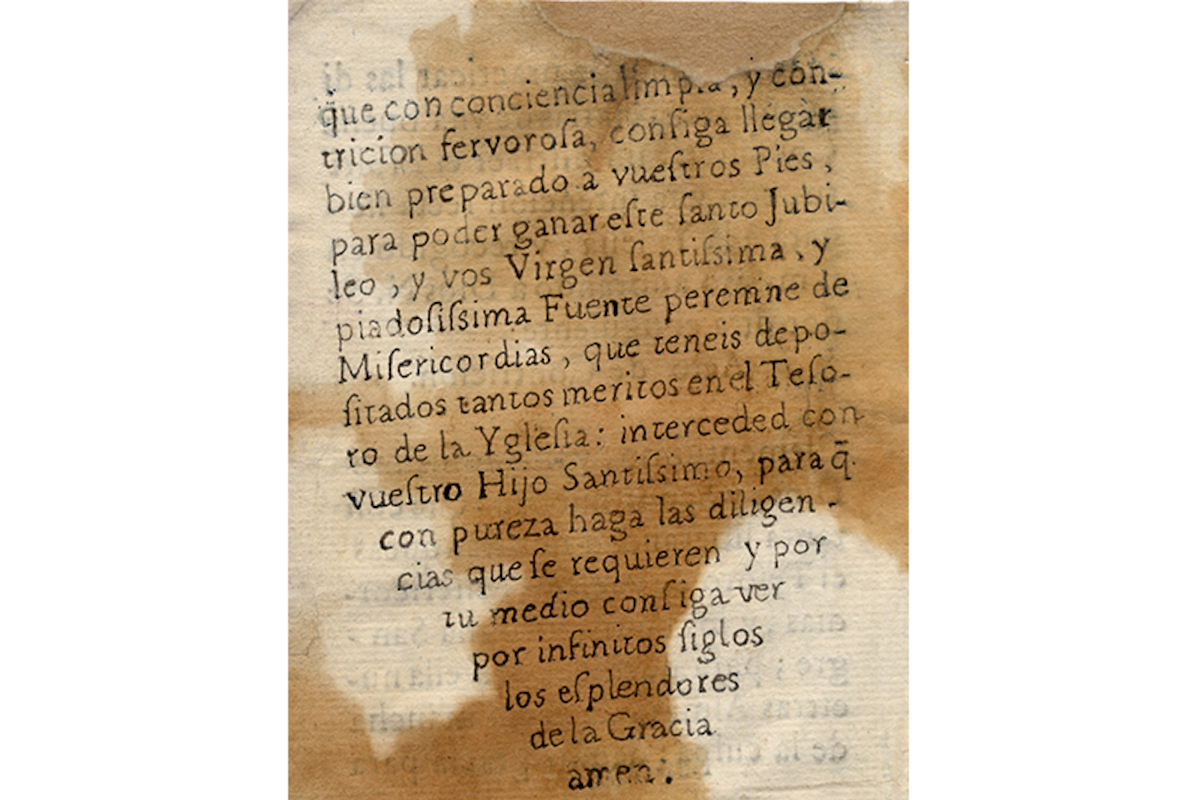 q̃ue con conciencia limpia, y con-
tricion fervoroſa, conſiga llegàr
bien preparado a vueſtros Pies,
para poder ganar eſte ſanto Jubi-
leo, y vos Virgen ſantiſsima, y
piadoſiſsima Fuente peremne de
Miſericordias, que teneis depo-
ſitados tantos meritos en el Teſo-
ro de la Ygleſia: interceded con
vueſtro Hijo Santiſsimo, para q̃.
con pureza haga las diligen-
cias que ſe requieren y por
tu medio conſiga ver
por infinitos ſiglos
los eſplendores
de la Gracia
amen.